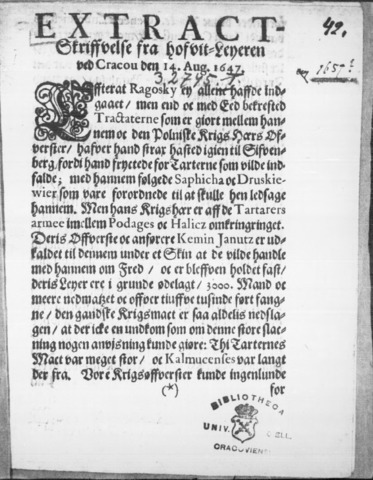 EXTRACT-
42.
Skriffvelse fra Hofvit-Leyeren
ved Cracou den 14. Aug. 1647.
3.2745.
1657
Effterat Ragosky ey allene haffde Ind-
gaaet/ men end oc med Eed bekrefted
Tractaterne som er giort mellem han-
nem oc den Polniske Krigs Hærs Of-
verster/ hafver hand strax hasted igien til Sifven-
berg, fordi hand fryctede for Tarterne som vilde ind-
falde; med hannem følgede Saphicha oc Druskie-
wier som vare forordnede til at skulle hen ledsage
hannem. Men hans Krigshær er aff de Tartarers
armee imellem Podages oc Halicz omkringringet.
Deris Offverste oc anførere Kemin Janutz er ud-
kaldet til dennem under et Skin at de vilde handle
med hannem om Fred/ oc er bleffven holdet fast/
deris Leyer ere i grunde ødelagt/ 3000. Mand oc
meere nedmatzet oc offver tiuffve tusinde ført fang-
ne/ den gandske Krigsmact er saa aldelis nedsla-
gen/ at der icke en undkom som om denne store slac-
ning nogen anvisning kunde giøre: Thi Tarternes
Mact var meget stor/ oc Kalmucenses var langt
der fra. Vore Krigsøffverster kunde ingenlunde
(*) for
BIBLIOTHECA
UNIV. CELL.
CRACOVIENSIS